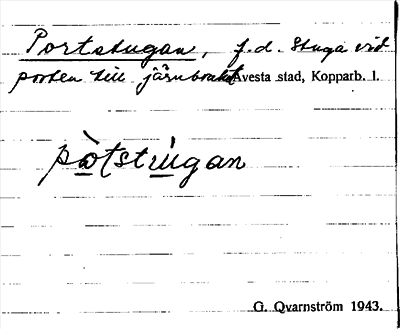 Portstugan, f.d. stuga vid
porten till järnbruket Avesta stad, Kopparb. l.
pòtstùgan
G. Qvarnström 1943.